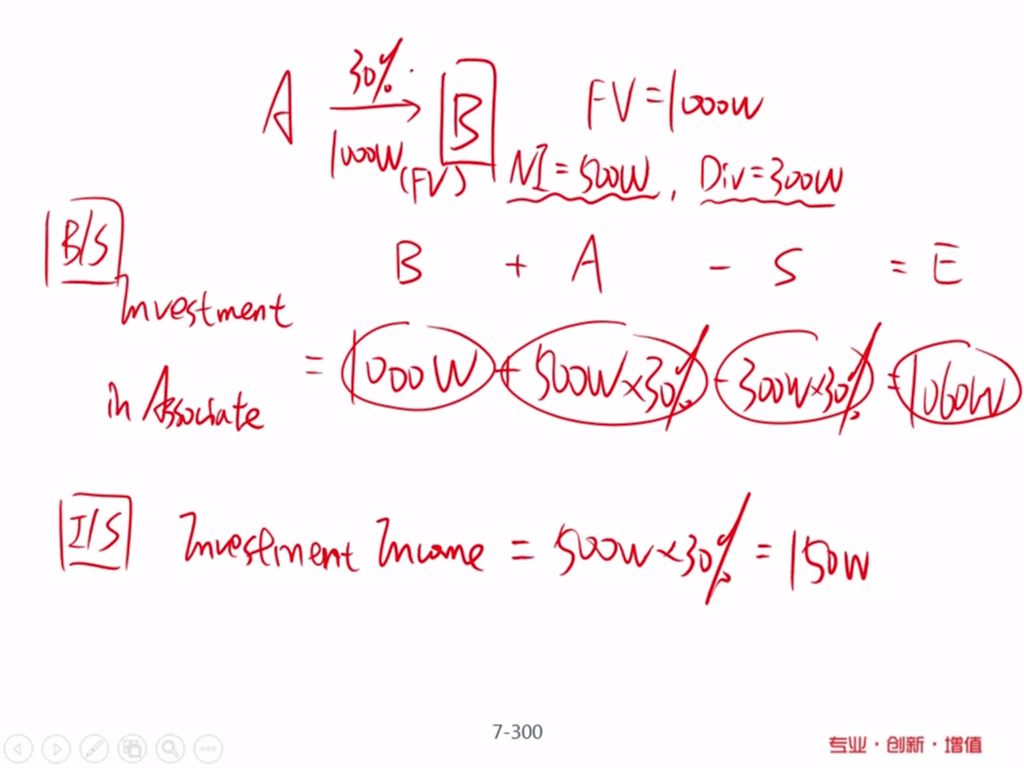 30%
A → B FV=1000W
1000W (FV) NI=500W, Div=300W
B/S
B + A - S = E
Investment
in Associate = 1000W + 500W×30% - 300W×30% = 1060W
I/S Investment Income = 500W×30% = 150W
7-300
专业·创新·增值